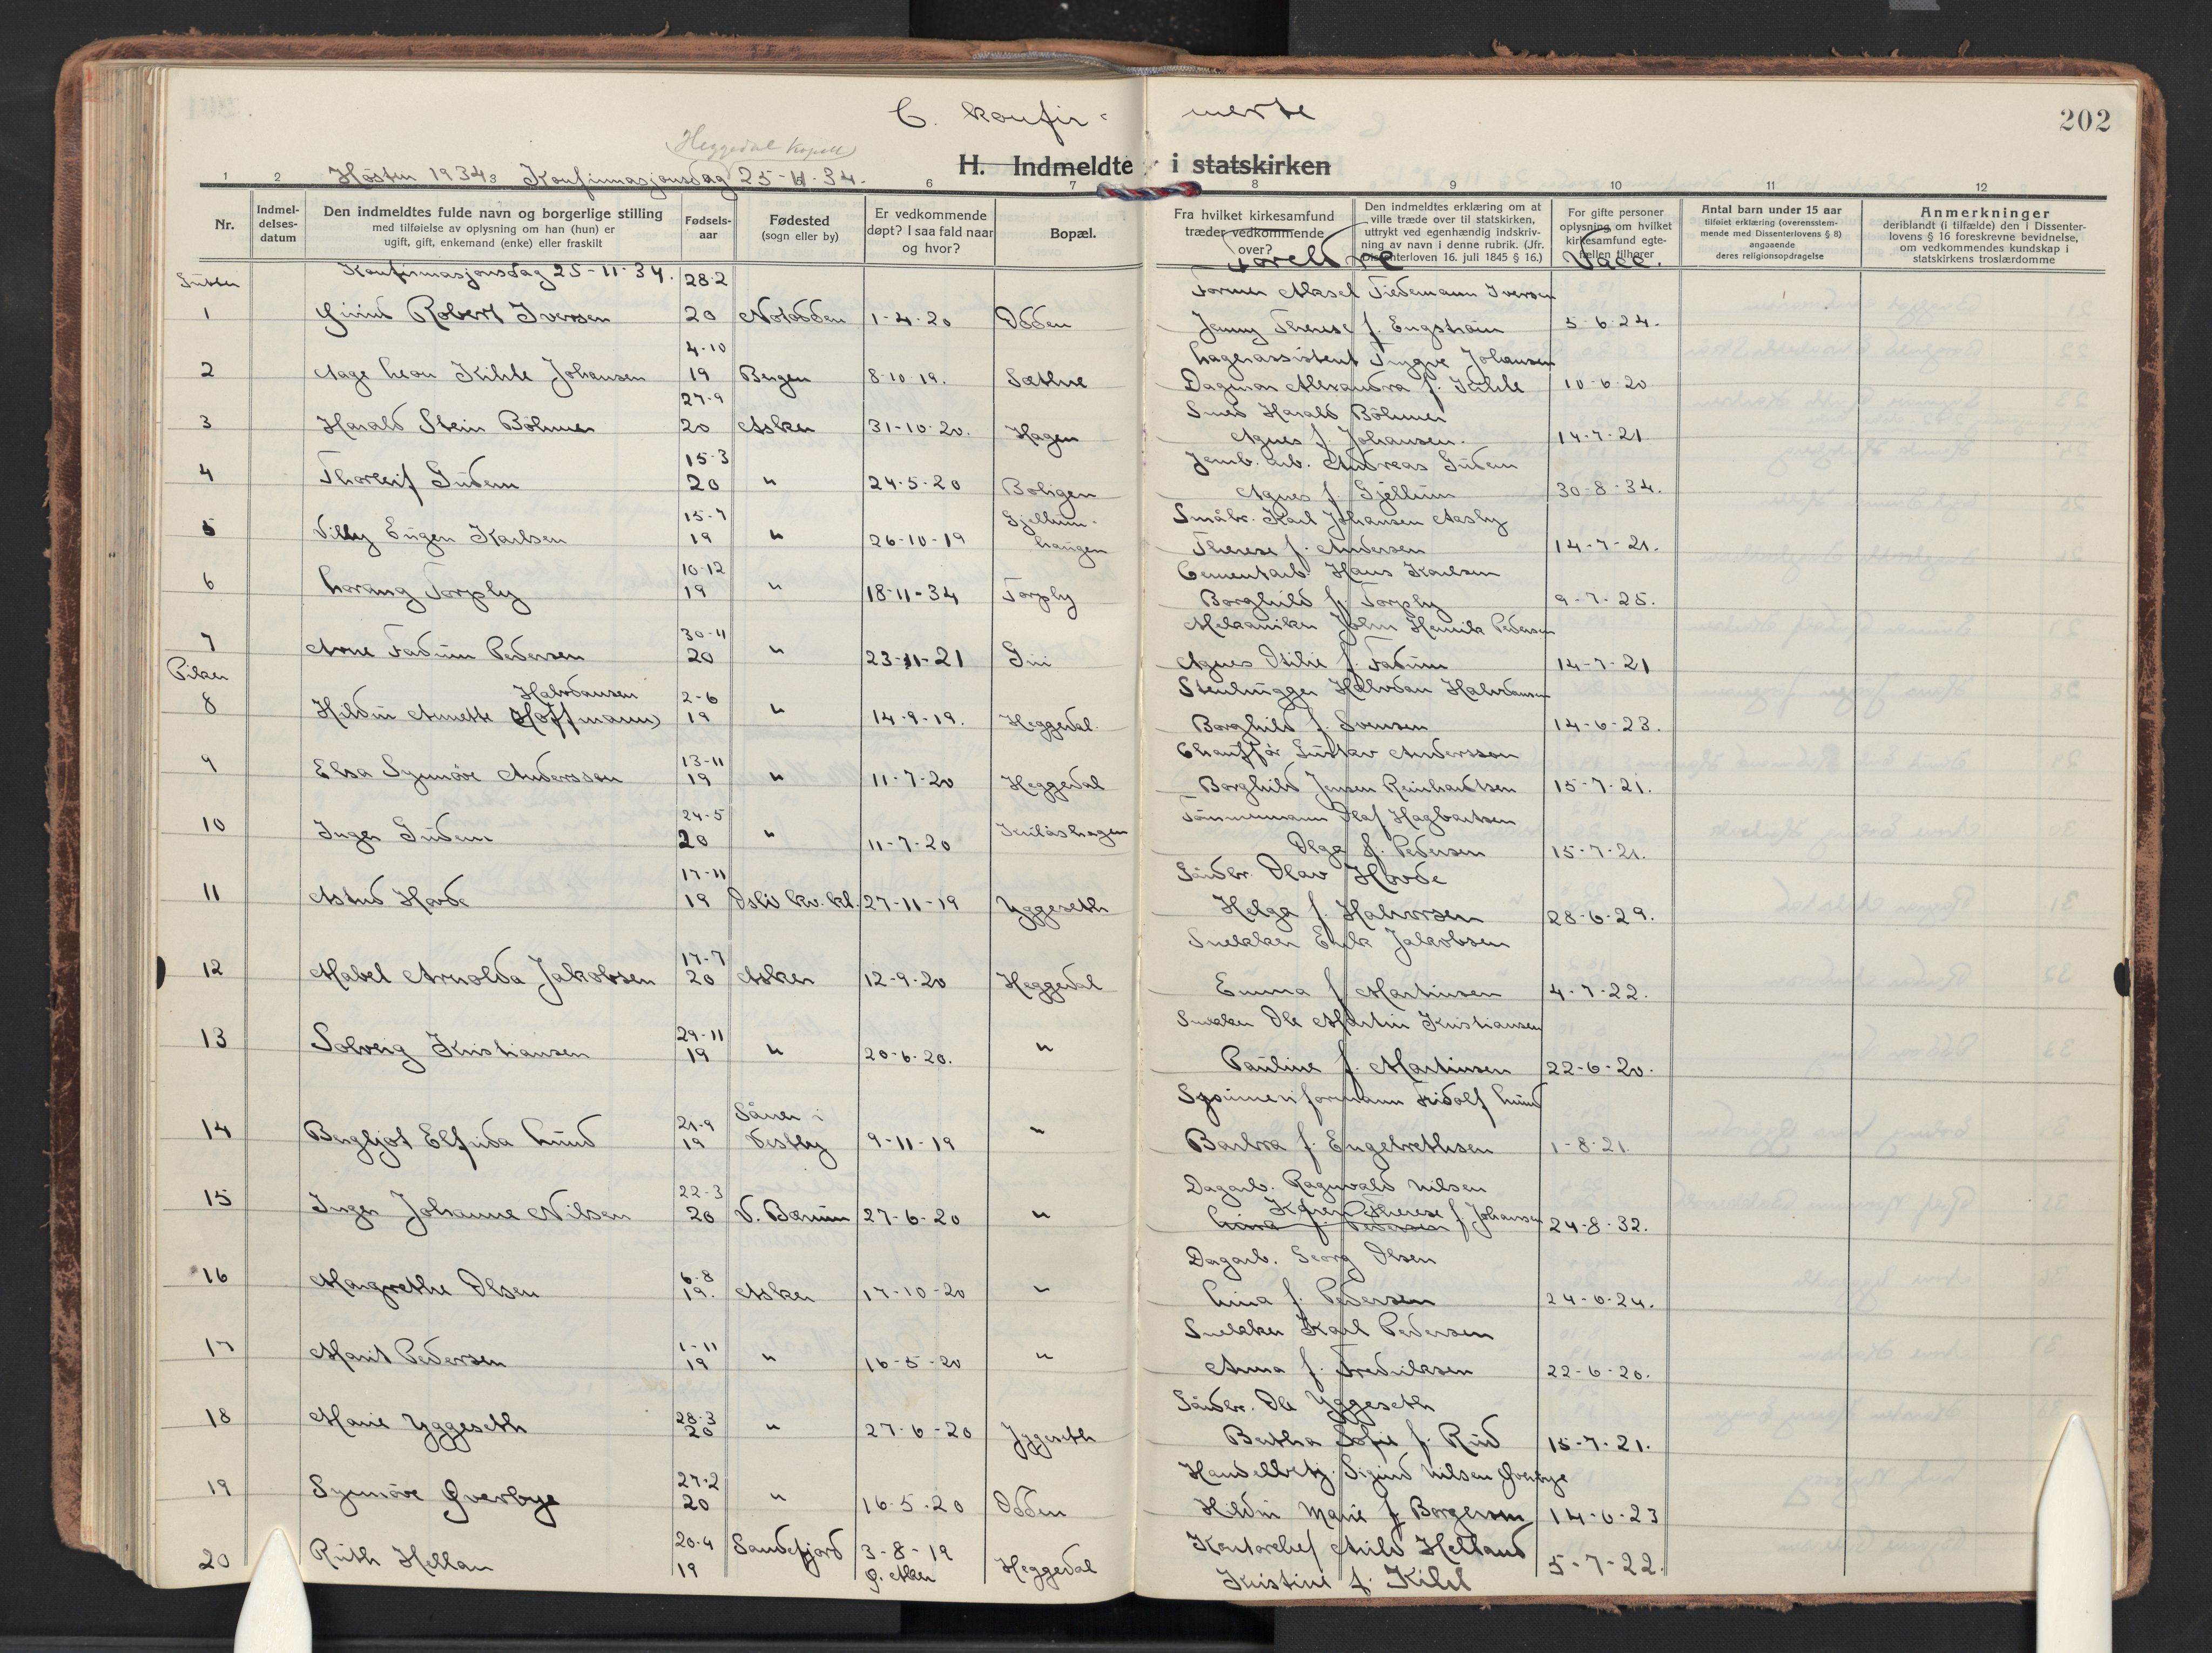 202
C. konfir- merte
(Heggedal Kapell)
H. Indmeldte i statskirken
Høsten 1934. Konfirmasjonsdag 25-11-34.
1 2 6 7 8 9 10 11 12
Nr.
Indmel-
delses-
datum
Den indmeldtes fulde navn og borgerlige stilling
med tilføielse av oplysning om han (hun) er
ugift, gift, enkemand (enke) eller fraskilt
Fødsels-
aar
Fødested
(sogn eller by)
Er vedkommende
døpt? I saa fald naar
og hvor?
Bopæl.
Fra hvilket kirkesamfund
træder vedkommende
over?
Foreldre
Den indmeldtes erklæring om at
ville træde over til statskirken,
uttrykt ved egenhændig indskriv-
ning av navn i denne rubrik. (Jfr.
Dissenterloven 16. juli 1845 § 16.)
For gifte personer
oplysning om hvilket
kirkesamfund egte-
fællen tilhører
Vacc.
Antal barn under 15 aar
tilføiet erklæring (overensstem-
mende med Dissenterlovens § 8)
angaaende
deres religionsopdragelse
Anmerkninger
deriblandt (i tilfælde) den i Dissenter-
lovens § 16 foreskrevne bevidnelse,
om vedkommendes kundskap i
statskirkens troslærdomme
Gutter
Konfirmasjonsdag 25-11-34.
1 Eivind Robert Iversen 28-2 20 Notodden 1-4-20 Odden Former Aksel Tiedemann Iversen
Jenny Therese f. Engstrøm 5-6-24.
2 Aage Leon Kihle Johansen 4-10 19 Bergen 8-10-19. Sæthre Lagerassistent Trygve Johansen
Dagmar Alexandra f. Kihle 10-6-20
3 Harald Stein Böhmer 27-9 20 Asker 31-10-20. Hagen Smed Harald Böhmer
Agnes f. Johansen. 14-7-21
4 Thorleif Gudem 15-3 20 " 24-5-20 Boligen Jernb. arb. Andreas Gudem
Agnes f. Gjellum 30-8-34.
5 Villy Eugen Karlsen 15-7 19 " 26-10-19 Gjellum-
haugen Småbr. Karl Johansen Aasby
Therese f. Andersen 14-7-21.
6 Lorang Torply 10-12 19 " 18-11-34 Torply Cementarb. Hans Karlsen
Borghild f. Torply 9-7-25.
7 Arne Fadum Pedersen 30-11 20 " 23-11-21 Gui Mekaniker John Henrik Pedersen
Agnes Otilie f. Fadum 14-7-21
Piker
8 Hildur Annette Halvdansen (Hoffmann) 2-6 19 " 14-9-19. Heggedal. Stenhugger Halvdan Halvdansen
Borghild f. Svensen 14-6-23.
9 Elsa Synnöve Andersson 13-11 19 " 11-7-20 Heggedal Chauffør Gustav Andersson
Borghild Jensen Reinhardtsen 15-7-21.
10 Inger Gudem 24-5 20 " 11-7-20 Tömmermann Olaf Hagbartsen
Olga f. Pedersen 15-7-21.
11 Astrid Hovde 17-11 19 Oslo kv. kl. 27-11-19 Yggeseth Gårdbr. Olav Hovde
Helga f. Halvorsen 28-6-29.
12 Mabel Arnolda Jakobsen 17-7 20 Asker 12-9-20 Heggedal Snekker Erik Jakobsen
Emma f Martinsen 4-7-22.
13 Solveig Kristiansen 29-11 19 " 20-6-20. " Snekker Ole Martin Kristiansen
Pauline f. Martinsen 22-6-20.
14 Bergljot Elfrida Lund 21-9 19 Såner i
Vestby 9-11-19 " formann Fridolf Lund
Barbra f. Engelrethsen 1-8-21.
15 Inger Johanne Nilsen 22-3 20 V. Bærum 27-6-20 " Dagarb. Ragnvald Nilsen
Karen Therese f Johansen 24-8-32.
Lina f. Pedersen
16 Margrethe Olsen 6-8 19. Asker 17-10-20 " Dagarb. Georg Olsen
Lina f. Pedersen 24-6-24.
17 Marit Pedersen 1-11 19 " 16-5-20 " Snekker Karl Pedersen
Anna f. Fredriksen 22-6-20.
18 Marie Yggeseth 28-3 20 " 27-6-20 Yggeseth Gårdbr. Ole Yggeseth
Bertha Sofie f. Rud 15-7-21.
19 Synnöve Øverbye 27-2 20 " 16-5-20 Odden Handelsbetj. Sigurd Nilsen Øverbye
Hildur Marie f Borgersen 14-6-23
20 Ruth Hellan 20-4 19 Sandefjord 3-8-19
Ø. Aker Heggedal Kontorchef Arild Helland
Kristine f. Kihl 5-7-22.